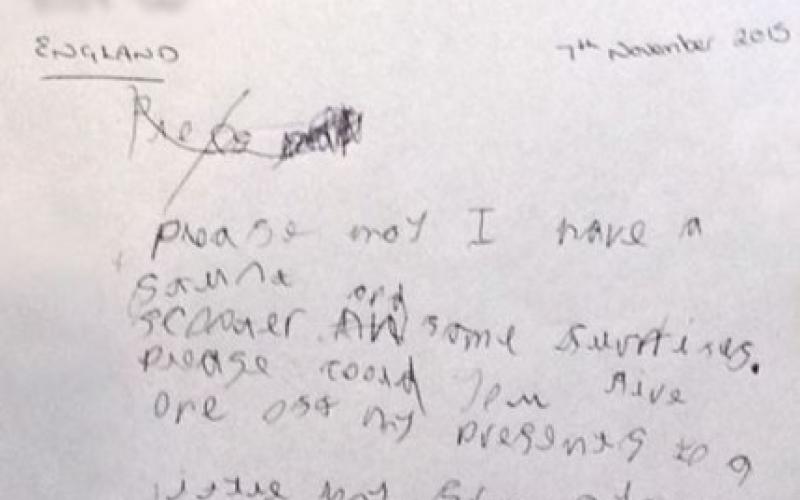 ENGLAND
7th November 2015
please may I have a
stunt
scooter and some surprises.
please could you give
one off my presents to a
little boy